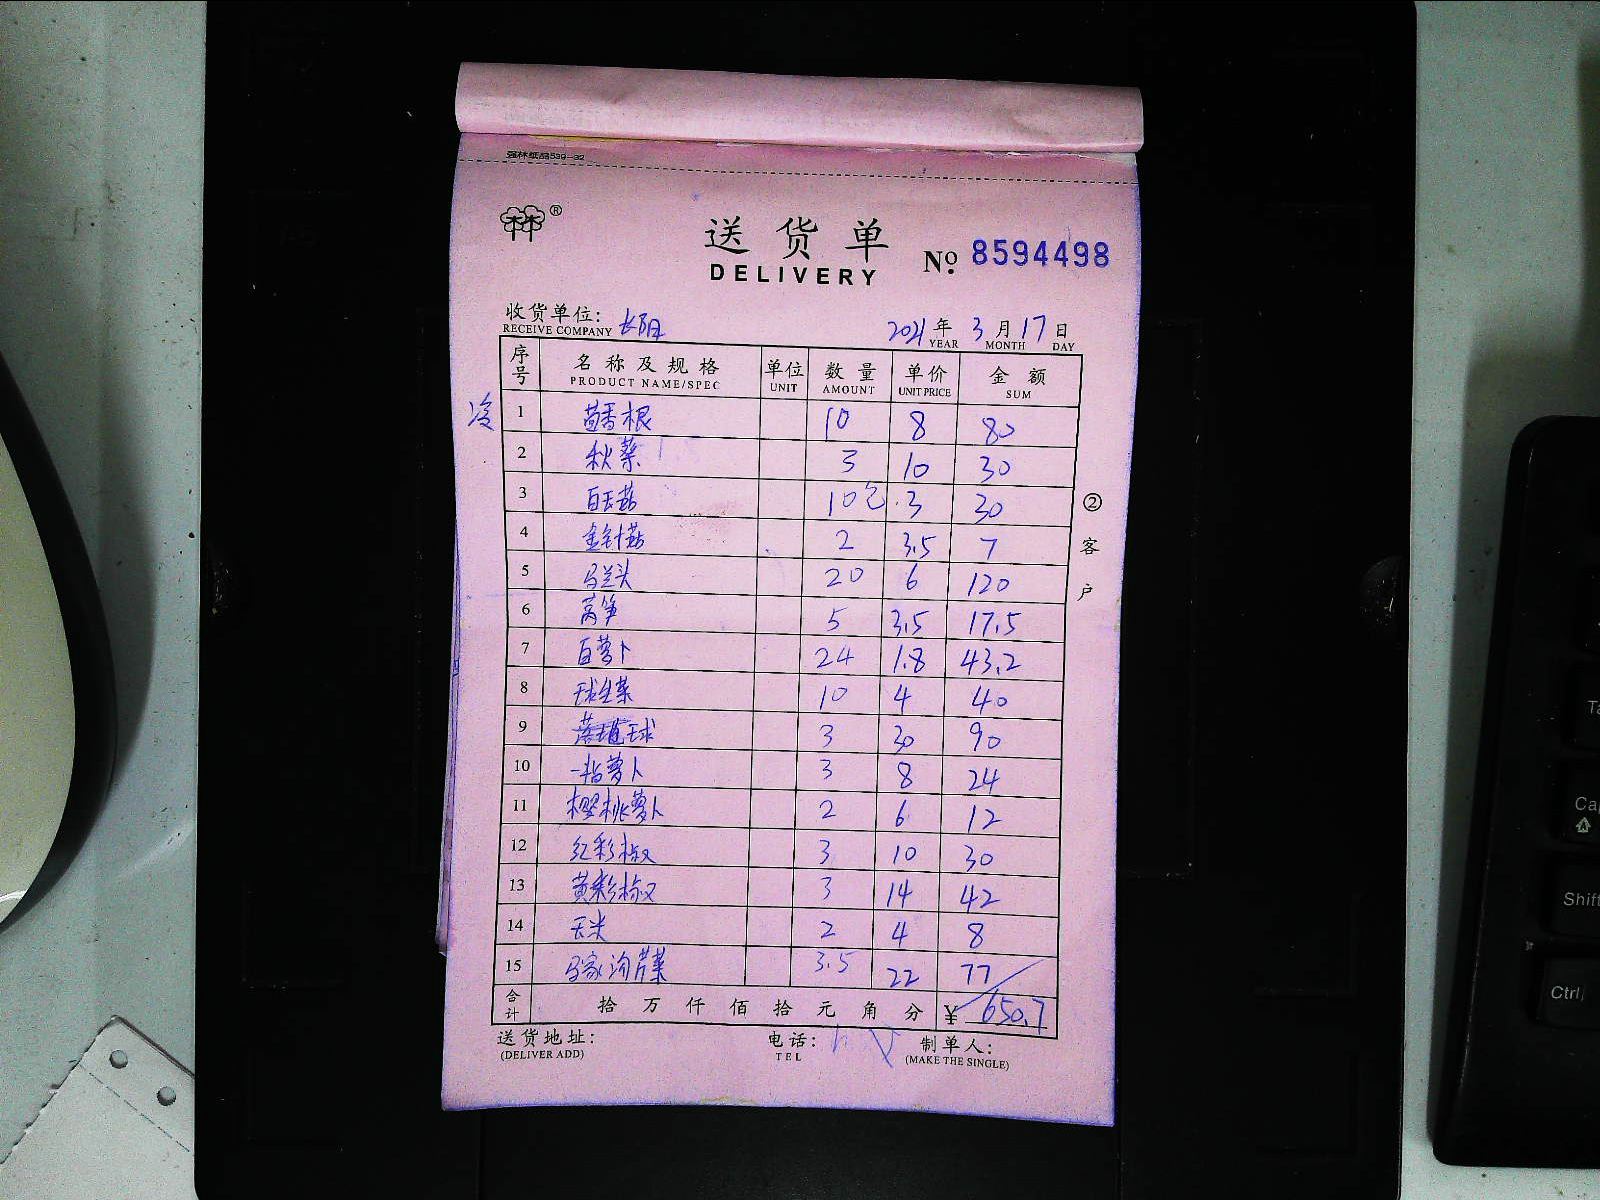 强林纸品539-32
®
送货单
DELIVERY
№ 8594498
收货单位: 长阳
RECEIVE COMPANY
2021年3月17日
YEAR MONTH DAY
序号 名称及规格 单位 数量 单价 金额
PRODUCT NAME/SPEC UNIT AMOUNT UNIT PRICE SUM
1 茴香根 10 8 80
2 秋葵 3 10 30
3 白玉菇 10包 3 30
4 金针菇 2 3.5 7
5 马兰头 20 6 120
6 莴笋 5 3.5 17.5
7 白萝卜 24 1.8 43.2
8 球生菜 10 4 40
9 球 3 30 90
10 一指萝卜 3 8 24
11 樱桃萝卜 2 6 12
12 红彩椒 3 10 30
13 黄彩椒 3 14 42
14 玉米 2 4 8
15 马家沟芹菜 3.5 22 77
合计 拾万仟佰拾元角分 ¥ 650.7
②客户
送货地址: 电话: 制单人:
(DELIVER ADD) TEL (MAKE THE SINGLE)
Ca
Shift
Ctrl